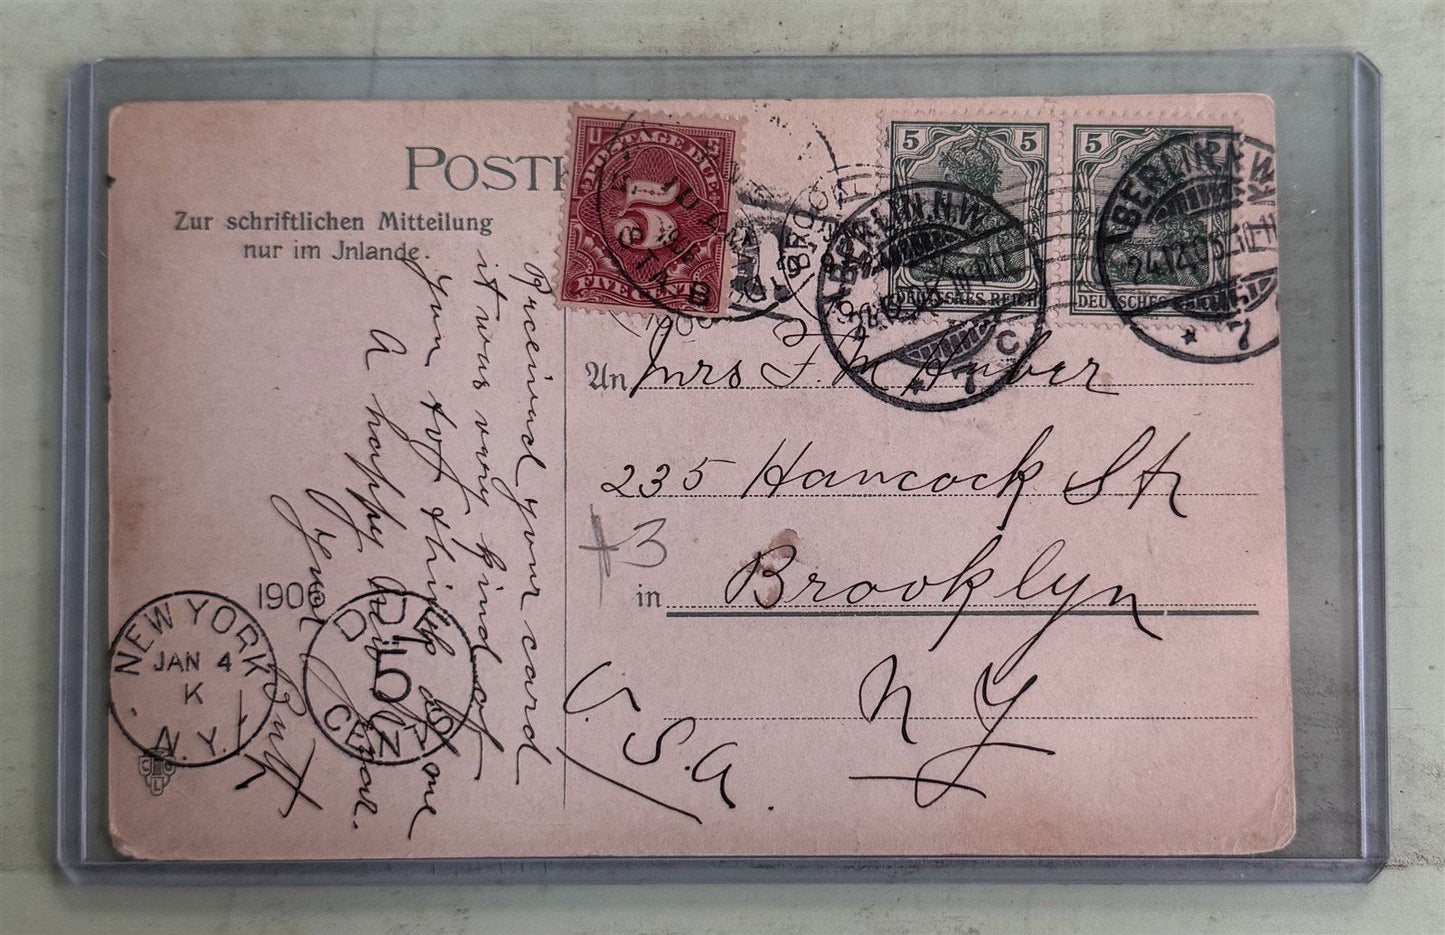 POSTK
Zur schriftlichen Mitteilung
nur im Jnlande.
U S
POSTAGE DUE
5
FIVE CENTS
5 5
DEUTSCHES REICH
5
DEUTSCHES
BERLIN.N.W.
* 7 C
BERLIN.N.W.
24.12.05
* 7
An Mrs F. M. Huber
235 Hancock Str
+3
in Brooklyn
N Y
U.S.A.
Received your card
it was very kind of
you to think of me
A happy New Year.
by yours
Ruth
1906
NEW YORK
JAN 4
K
N.Y.
DUE
10
CENTS